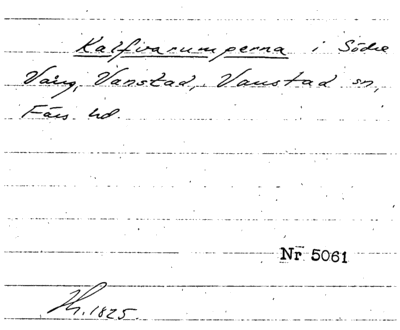 Kalfvarumperna i Södre
Vång, Vanstad, Vanstad sn,
Färs hd.
Nr 5061
Th. 1825.